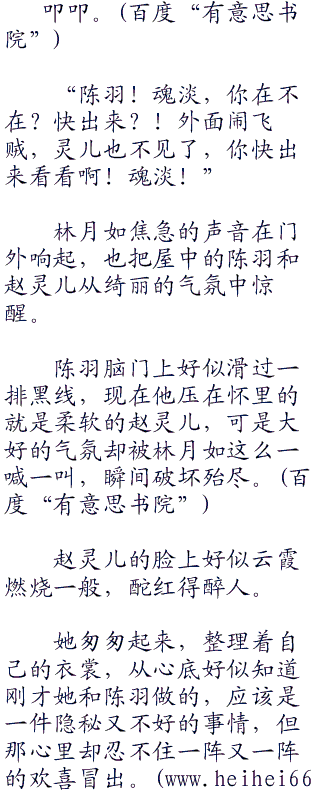 叩叩。(百度“有意思书
院”)
“陈羽！魂淡，你在不
在？快出来？！外面闹飞
贼，灵儿也不见了，你快出
来看看啊！魂淡！”
林月如焦急的声音在门
外响起，也把屋中的陈羽和
赵灵儿从绮丽的气氛中惊
醒。
陈羽脑门上好似滑过一
排黑线，现在他压在怀里的
就是柔软的赵灵儿，可是大
好的气氛却被林月如这么一
喊一叫，瞬间破坏殆尽。(百
度“有意思书院”)
赵灵儿的脸上好似云霞
燃烧一般，酡红得醉人。
她匆匆起来，整理着自
己的衣裳，从心底好似知道
刚才她和陈羽做的，应该是
一件隐秘又不好的事情，但
那心里却忍不住一阵又一阵
的欢喜冒出。(www.heihei66